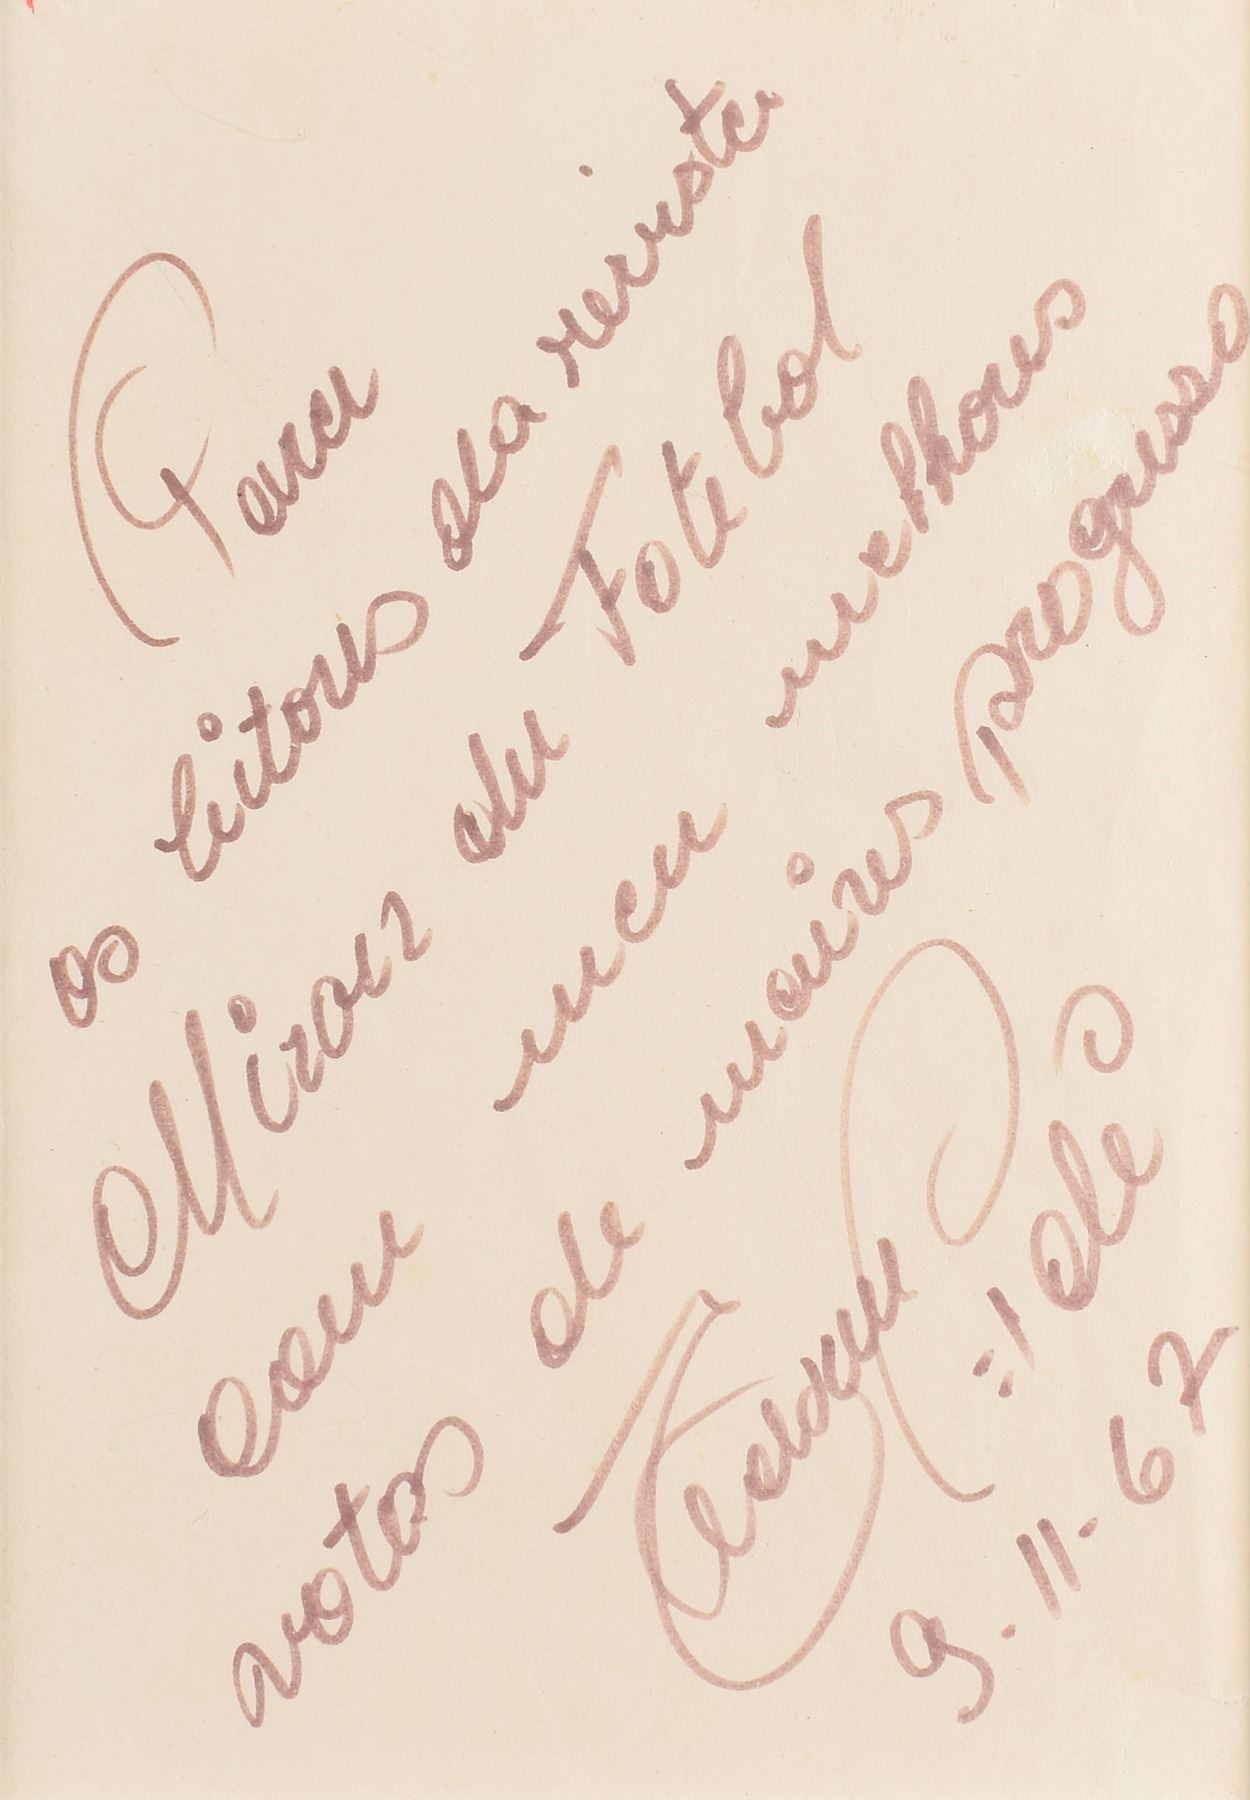 Para
os leitores da revista
Miroir du Fotebol
com meu melhores
votos de maires progresso
Edson = Pelé
9-11-67